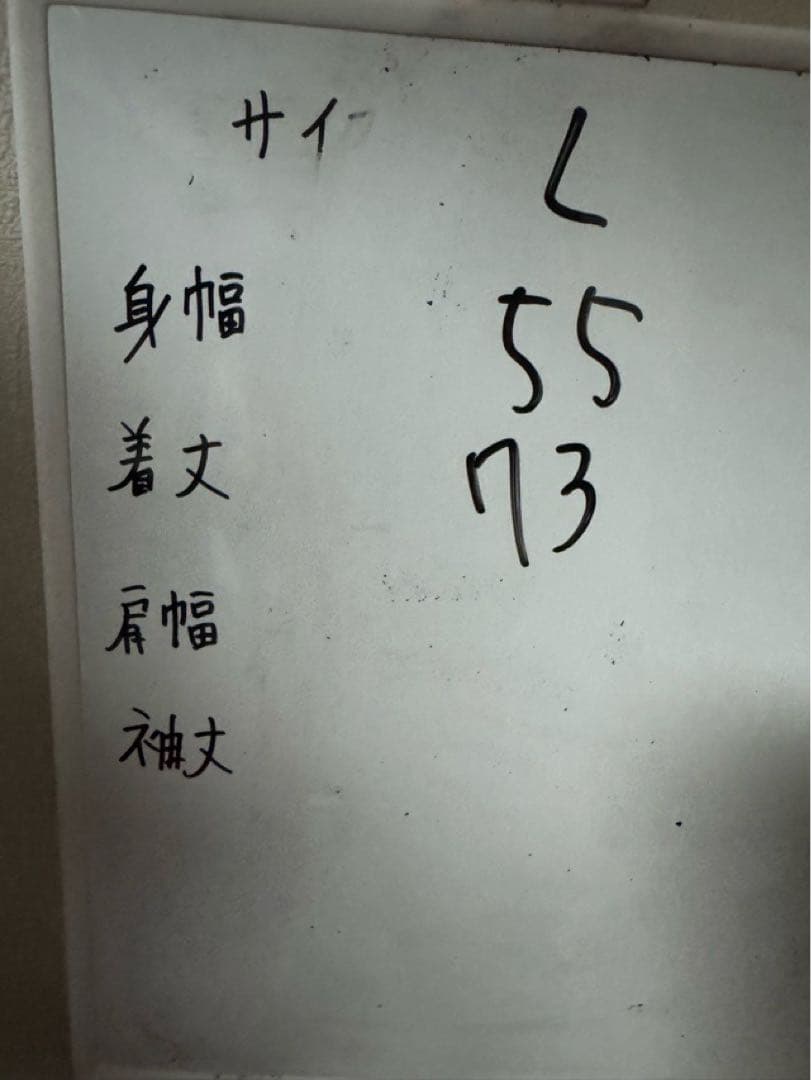 サイ L
身幅 55
着丈 73
肩幅
袖丈